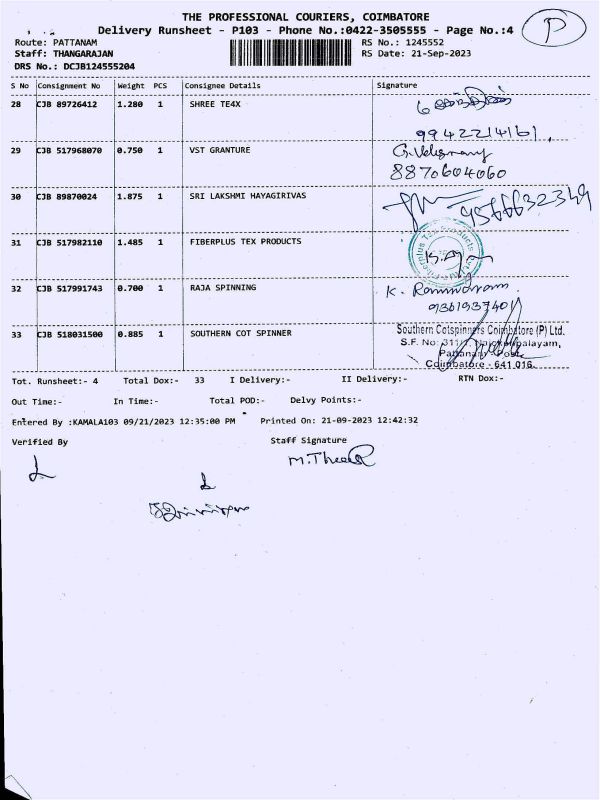 THE PROFESSIONAL COURIERS, COIMBATORE
Delivery Runsheet - P103 - Phone No.:0422-3505555 - Page No.:4
P
Route: PATTANAM RS No.: 1245552
Staff: THANGARAJAN RS Date: 21-Sep-2023
DRS No.: DCJB124555204
S No Consignment No Weight PCS Consignee Details Signature
28 CJB 89726412 1.280 1 SHREE TE4X
9942214161
29 CJB 517968070 0.750 1 VST GRANTURE
8870604060
30 CJB 89870024 1.875 1 SRI LAKSHMI HAYAGIRIVAS 9566632349
31 CJB 517982110 1.485 1 FIBERPLUS TEX PRODUCTS
32 CJB 517991743 0.700 1 RAJA SPINNING K.
33 CJB 518031500 0.885 1 SOUTHERN COT SPINNER Southern Cotspinners Coimbatore (P) Ltd.
S.F. No:
Pattanam Post,
Coimbatore - 641 016.
Tot. Runsheet:- 4 Total Dox:- 33 I Delivery:- II Delivery:- RTN Dox:-
Out Time:- In Time:- Total POD:- Delvy Points:-
Entered By :KAMALA103 09/21/2023 12:35:00 PM Printed On: 21-09-2023 12:42:32
Verified By Staff Signature